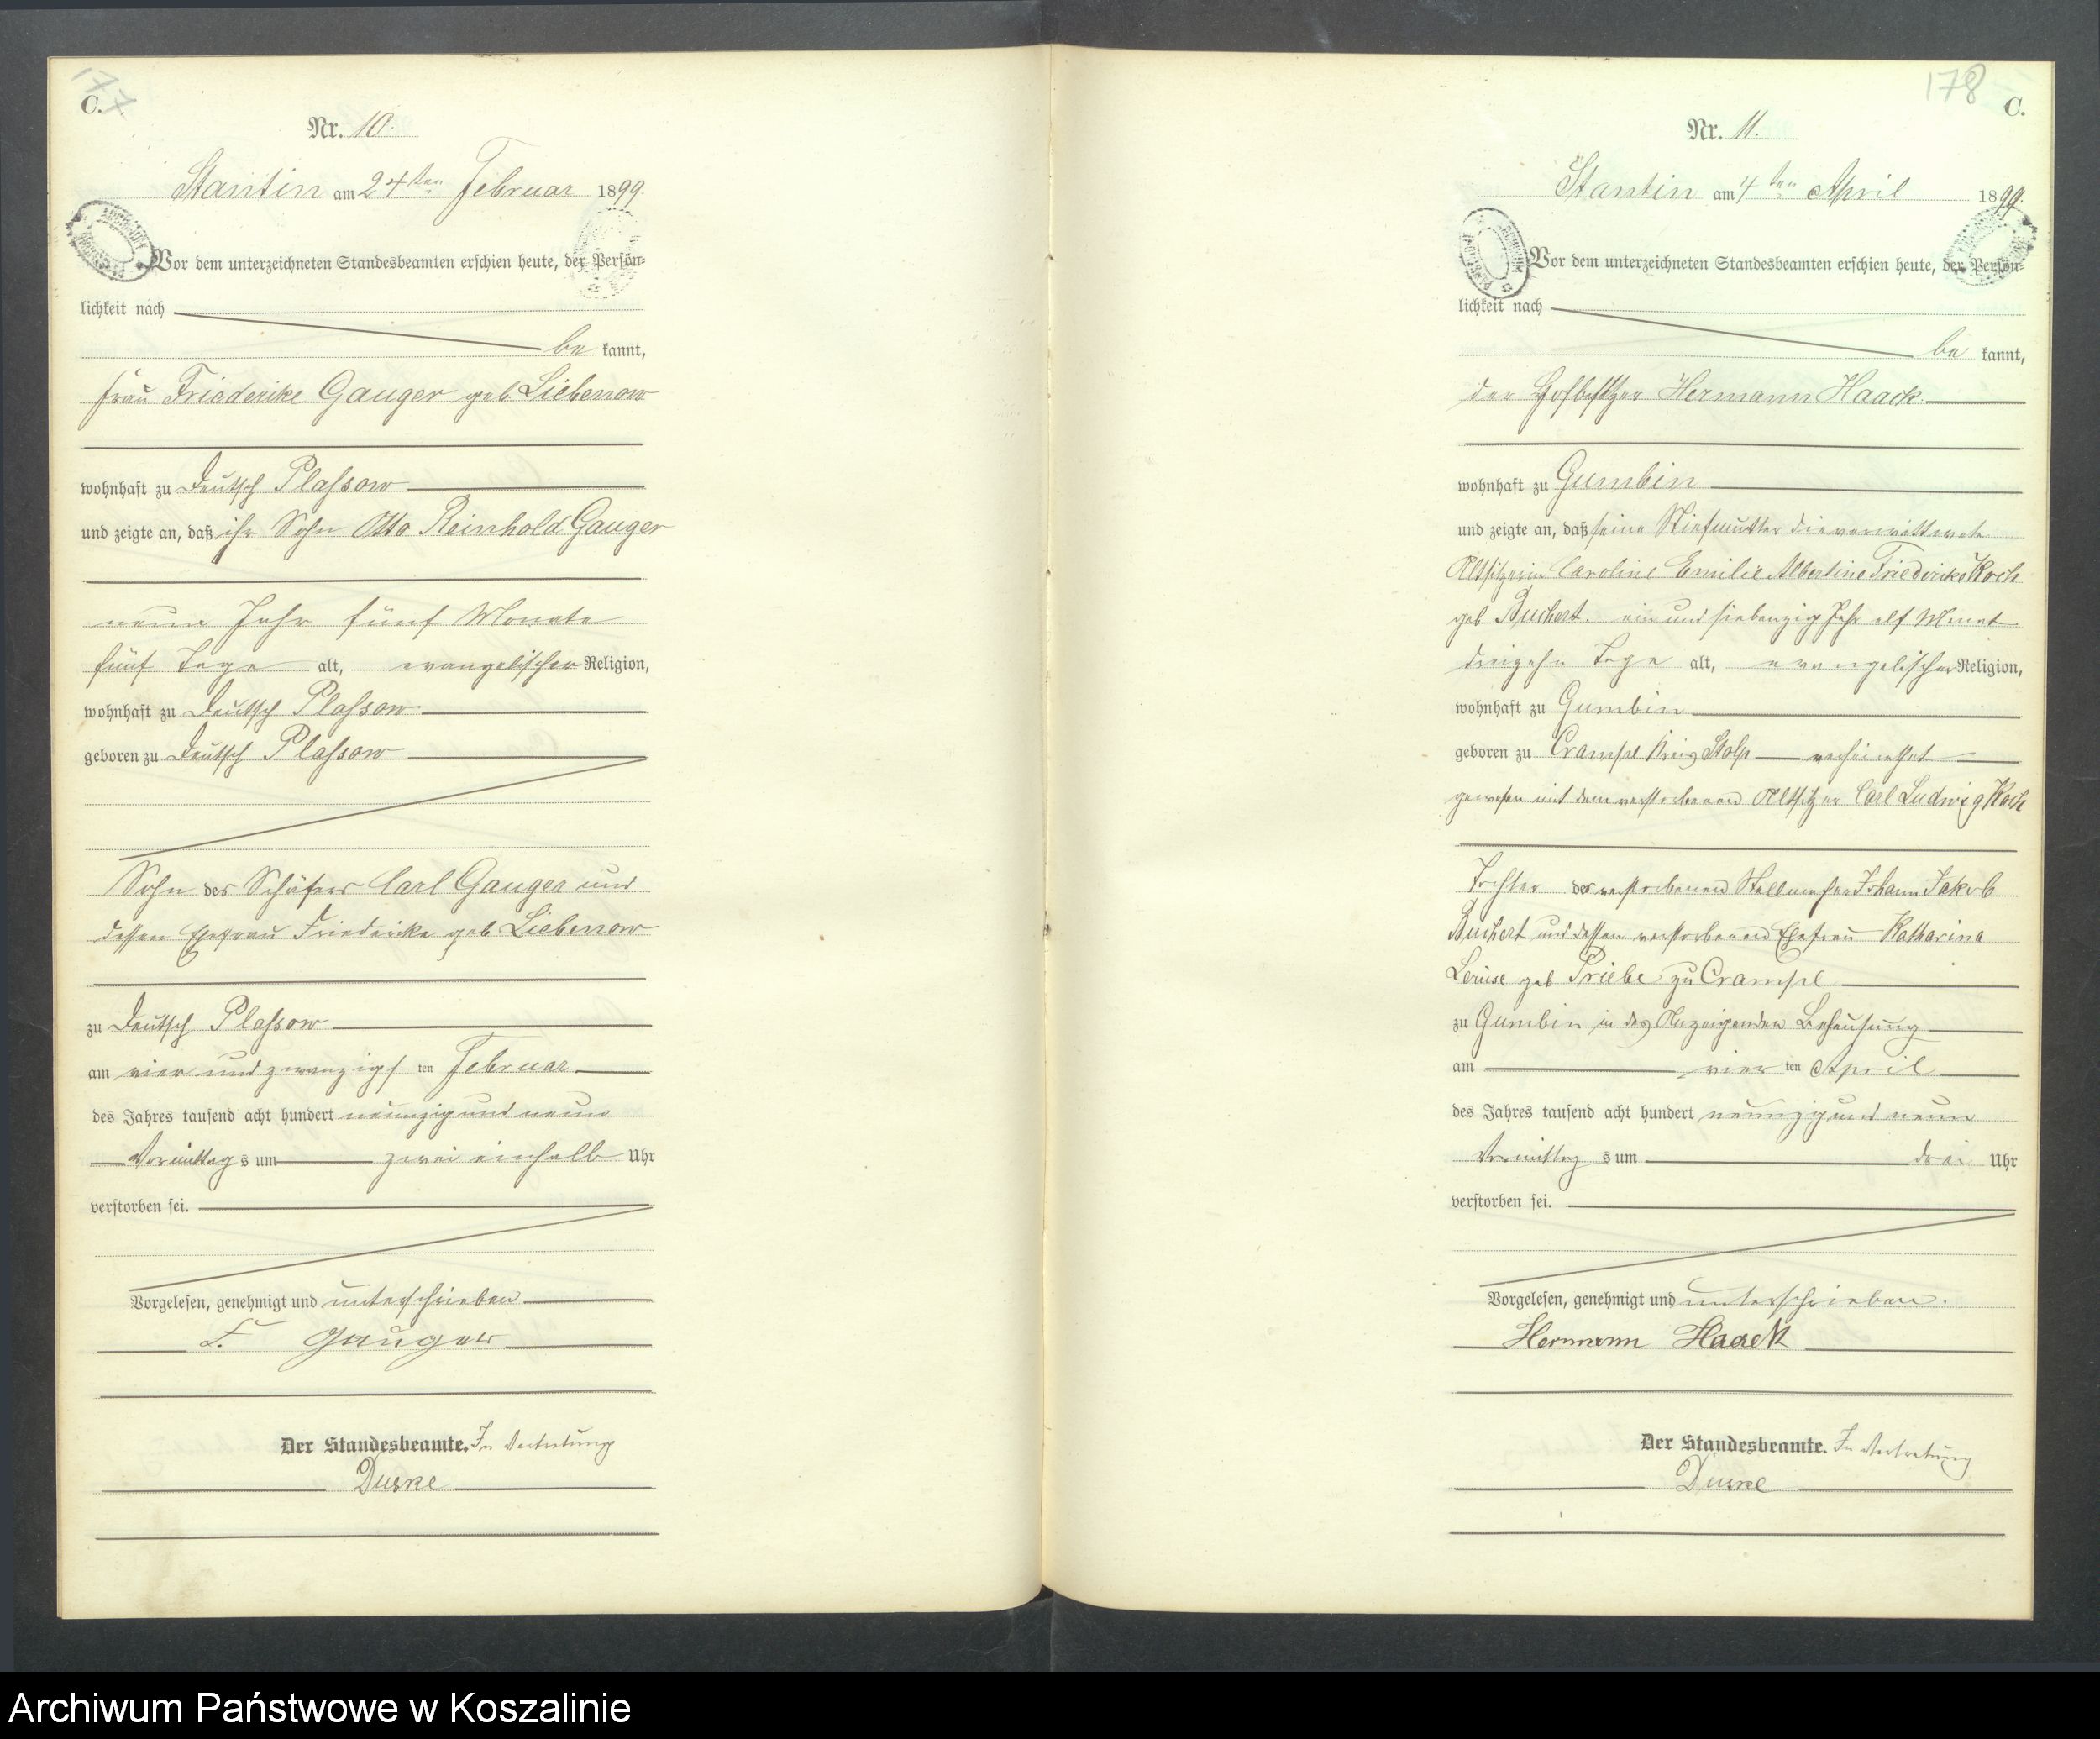 177
C.
Nr. 10.
Stantin am 24ten Februar 1899.
Vor dem unterzeichneten Standesbeamten erschien heute, der Persön-
lichkeit nach
be kannt,
Frau Friederike Gauger geb. Liebenow
wohnhaft zu Deutsch Plassow
und zeigte an, daß ihr Sohn Otto Reinhold Gauger
neun Jahr fünf Monate
fünf Tage alt, evangelischer Religion,
wohnhaft zu Deutsch Plassow
geboren zu Deutsch Plassow
Sohn des Schäfers Carl Gauger und
dessen Ehefrau Friederike geb Liebenow
zu Deutsch Plassow
am vier und zwanzigs ten Februar
des Jahres tausend acht hundert neunzig und neun
Vormittag s um zwei einhalb Uhr
verstorben sei.
Vorgelesen, genehmigt und unterschrieben
F. Gauger
Der Standesbeamte. In Vertretung
178
C.
Nr. 11.
Stantin am 4ten April 1899.
Vor dem unterzeichneten Standesbeamten erschien heute, der Persön-
lichkeit nach
be kannt,
der Hofbesitzer Hermann Haack
wohnhaft zu Gumbin
und zeigte an, daß seine Stiefmutter die verwittwete
Altsitzerin Caroline Emilie Albertine Friederike Koch
geb. ein und siebenzig Jahr elf Monat
dreizehn Tage alt, evangelischer Religion,
wohnhaft zu Gumbin
geboren zu Crampe Kreis Stolp verheirathet
gewesen mit dem verstorbenen Altsitzer Carl Ludwig Koch
Tochter des verstorbenen Stellmacher Johann Jakob
und dessen verstorbenen Ehefrau Katharina
Louise geb Priebe zu Crampe
zu Gumbin in des Anzeigenden Behausung
am vier ten April
des Jahres tausend acht hundert neunzig und neun
Vormittag s um drei Uhr
verstorben sei.
Vorgelesen, genehmigt und unterschrieben.
Hermann Haack
Der Standesbeamte. In Vertretung
Archiwum Państwowe w Koszalinie